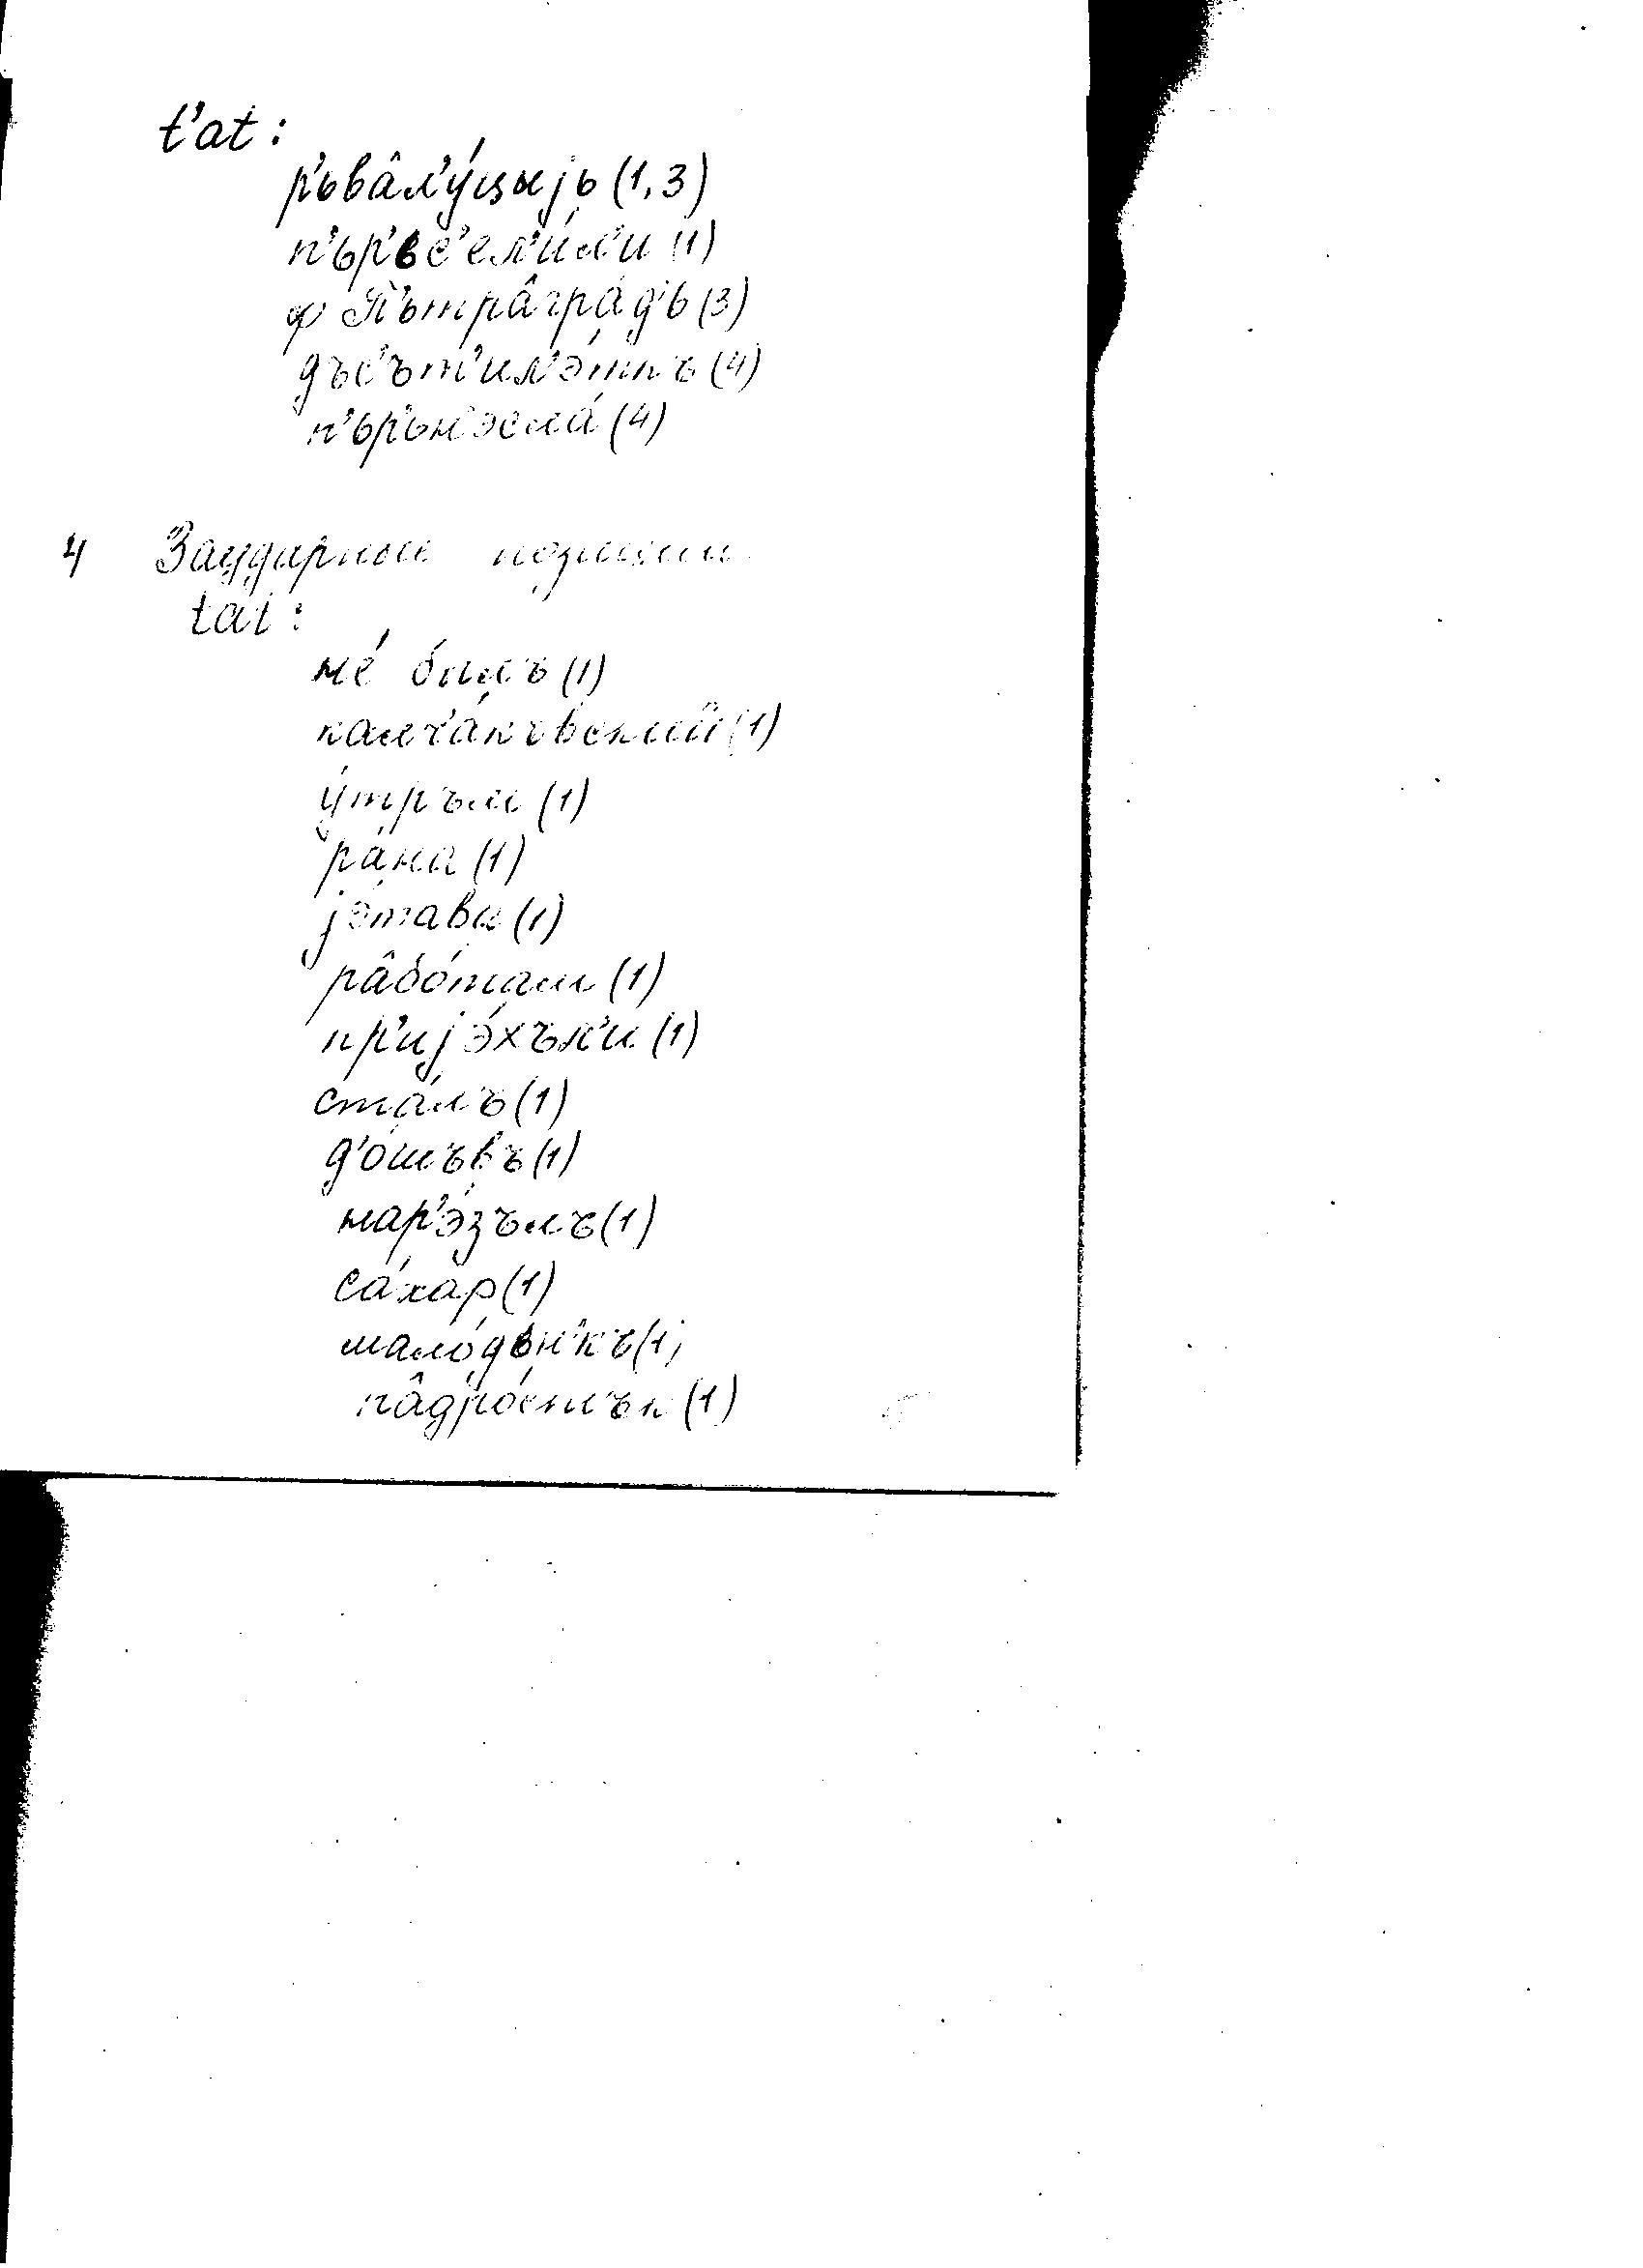 t'at:
р'ьвâл'у́цыjь (1,3)
п'ьр'ьс'ел'и́л'и (1)
ф П'ьтрâгра́д'ь (3)
дъс'ът'ил'э́ткъ (4)
п'ьр'ьн'эсла́ (4)
4 Заударные позиции
tat:
не́ былъ (1)
калча́къвский (1)
у́тръм (1)
ра́на (1)
jэ́тавы (1)
рâбо́тал (1)
пр'иjэ́хъл'и (1)
ста́лъ (1)
д'о́шъвъ (1)
нар'э́зълъ (1)
са́хар (1)
мало́дьн'къ (1)
пâдро́стък (1)